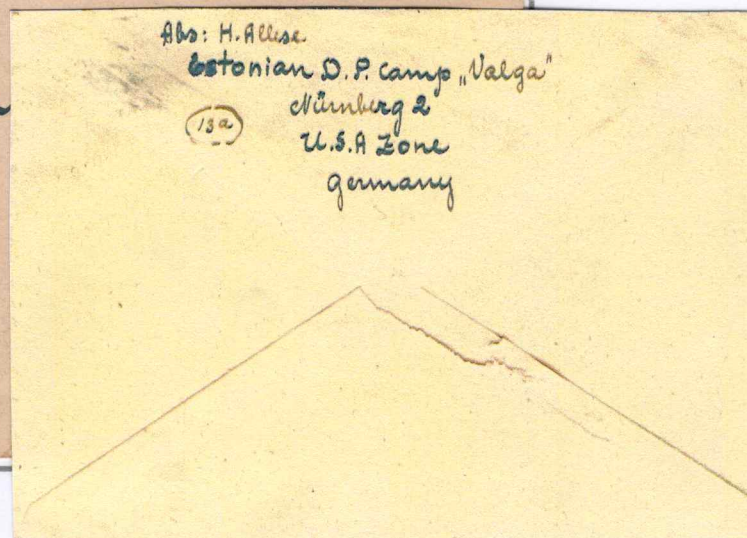 Abs: H. Allese
Estonian D.P. camp „Valga"
(13a)
Nürnberg 2
U.S.A Zone
Germany